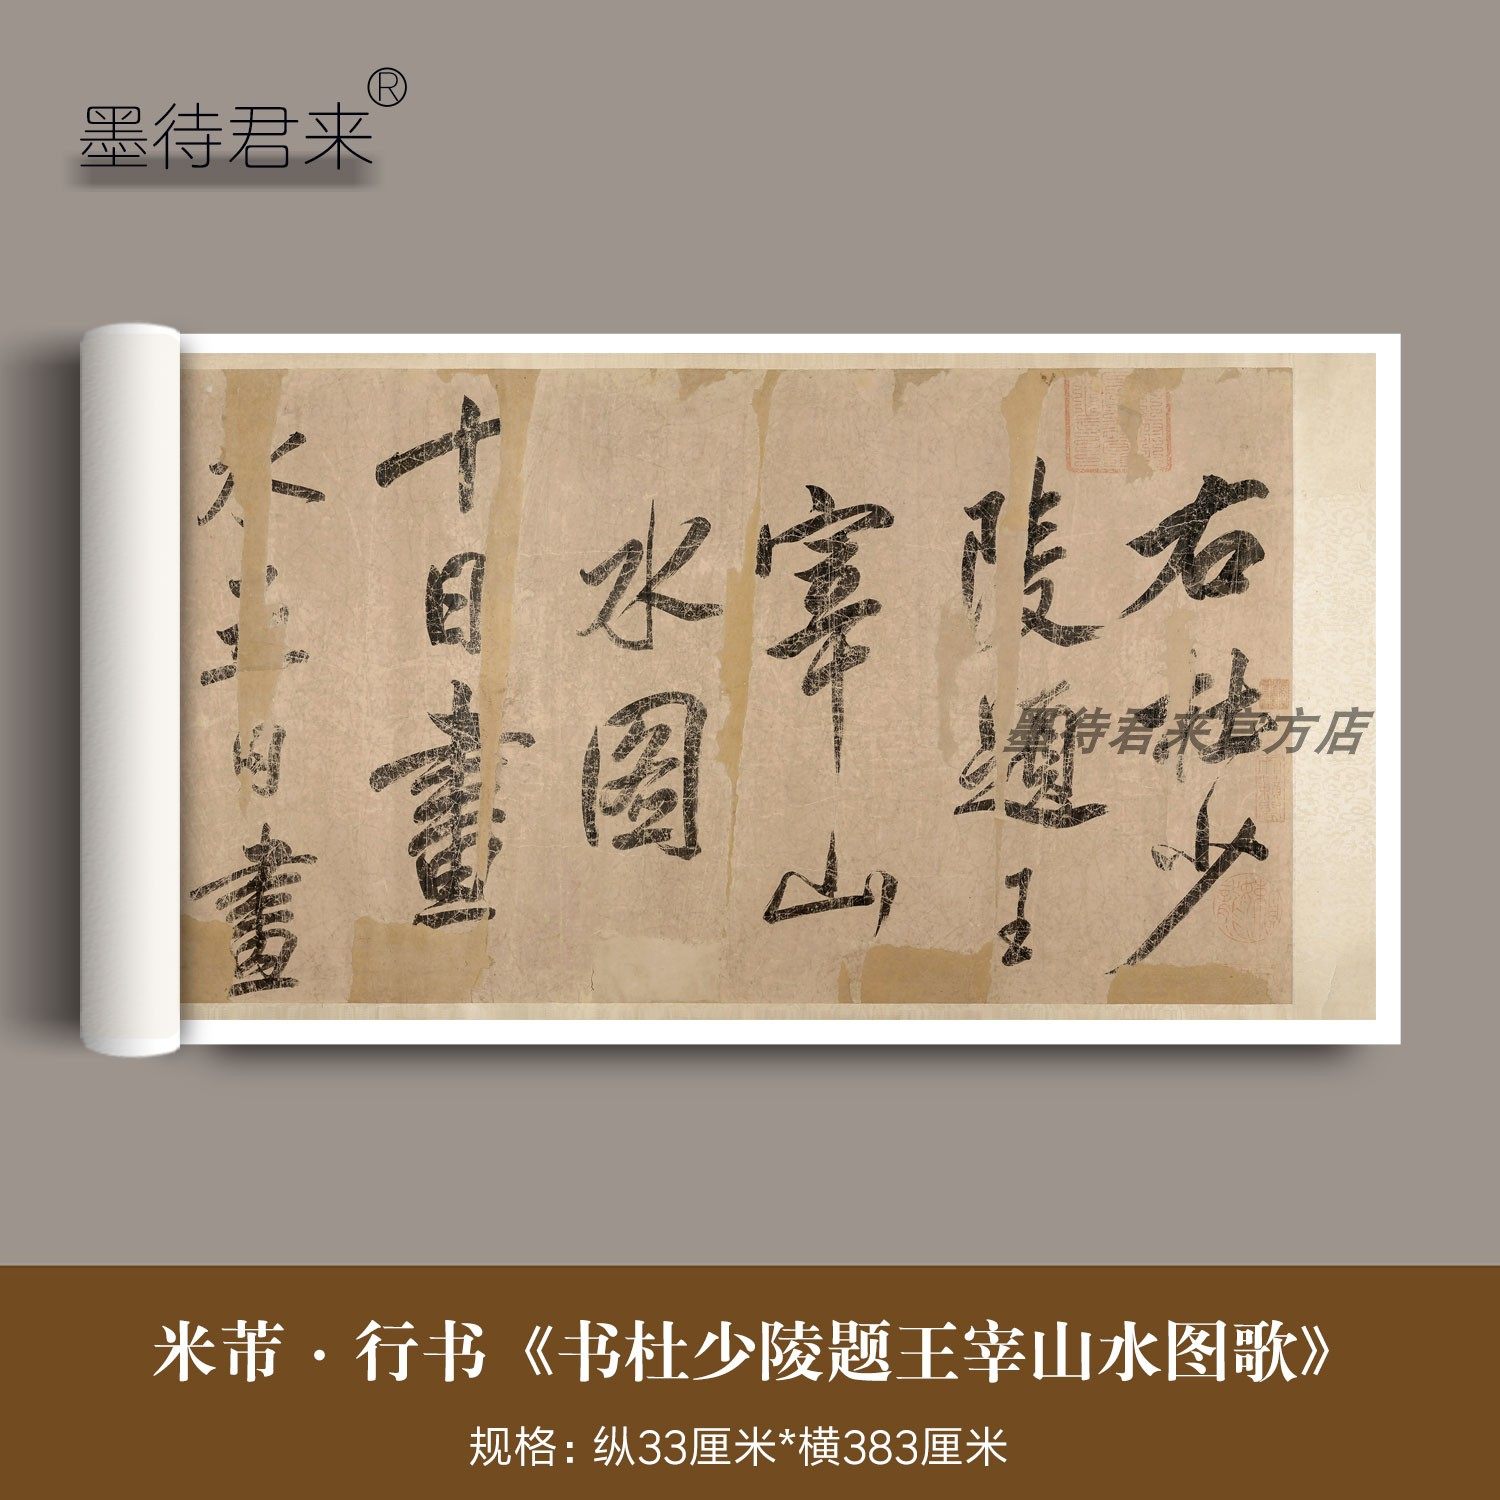 墨待君来®
右杜少
陵题王
宰山
水圖
十日畫
水五日畫
墨待君来官方店
米芾·行书《书杜少陵题王宰山水图歌》
规格：纵33厘米*横383厘米